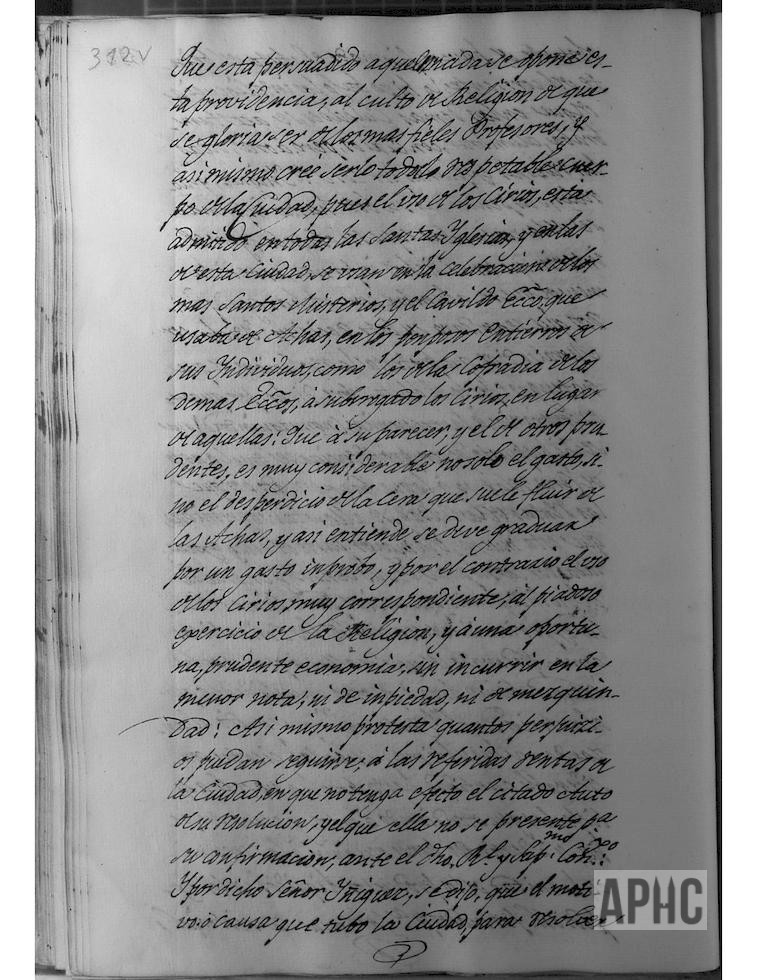 312v
Que esta persuadido a que en nada se opone es-
ta providencia, al culto de Religion de que
se gloria ser de los mas fieles Profesores, y
asi mismo cree serlo todo lo respetable cuer-
po de la Ciudad, pues el uso de los Cirios, esta
admitido en todas las Santas Yglesias, y en las
de esta Ciudad, se usan en la celebracion de los
mas Santos Misterios, y el Cavildo Ecco, que
usaba de Achas, en los ponposos Entierros de
sus Individuos, como los de la Cofradia de los
demas Eccos, á subrogado los Cirios, en lugar
de aquellas: Que á su parecer, y el de otros pru-
dentes, es muy considerable no solo el gasto, si-
no el desperdicio de la Cera que suele fluir de
las Achas, y asi entiende se deve graduar
por un gasto inprobo, y por el contrario el uso
de los Cirios muy correspondiente, al piadoso
exercicio de la Religion, y á una oportu-
na, prudente economia, sin incurrir en la
menor nota, ni de inpiedad, ni de mezquin-
dad: Asi mismo protesta quantos perjuizi-
os puedan seguirse, á las referidas rentas de
la Ciudad, en que no tenga efecto el citado Auto
de su resolucion, y el que ella no se presente pa
su confirmacion, ante el dho. Rl. y Sup.mo Con.eo:
Y por dicho Señor Yniguez, se dijo, que el moti-
vo, ó causa que tubo la Ciudad, para resolver
APHC